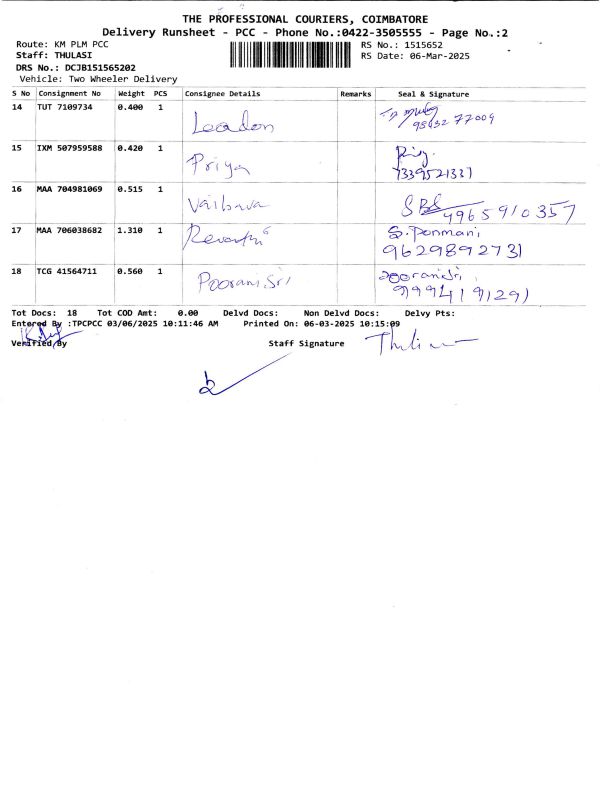 THE PROFESSIONAL COURIERS, COIMBATORE
Delivery Runsheet - PCC - Phone No.:0422-3505555 - Page No.:2
Route: KM PLM PCC
RS No.: 1515652
Staff: THULASI
RS Date: 06-Mar-2025
DRS No.: DCJB151565202
Vehicle: Two Wheeler Delivery
S No Consignment No Weight PCS Consignee Details Remarks Seal & Signature
14 TUT 7109734 0.400 1 Leadon 77009
15 IXM 507959588 0.420 1 Priya
16 MAA 704981069 0.515 1 Vaibava 4965910357
17 MAA 706038682 1.310 1 Revathi S. Ponmani
9629892731
18 TCG 41564711 0.560 1 Poorani Sri Poorani Sri
9994191291
Tot Docs: 18 Tot COD Amt: 0.00 Delvd Docs: Non Delvd Docs: Delvy Pts:
Entered By :TPCPCC 03/06/2025 10:11:46 AM Printed On: 06-03-2025 10:15:09
Verified By Staff Signature